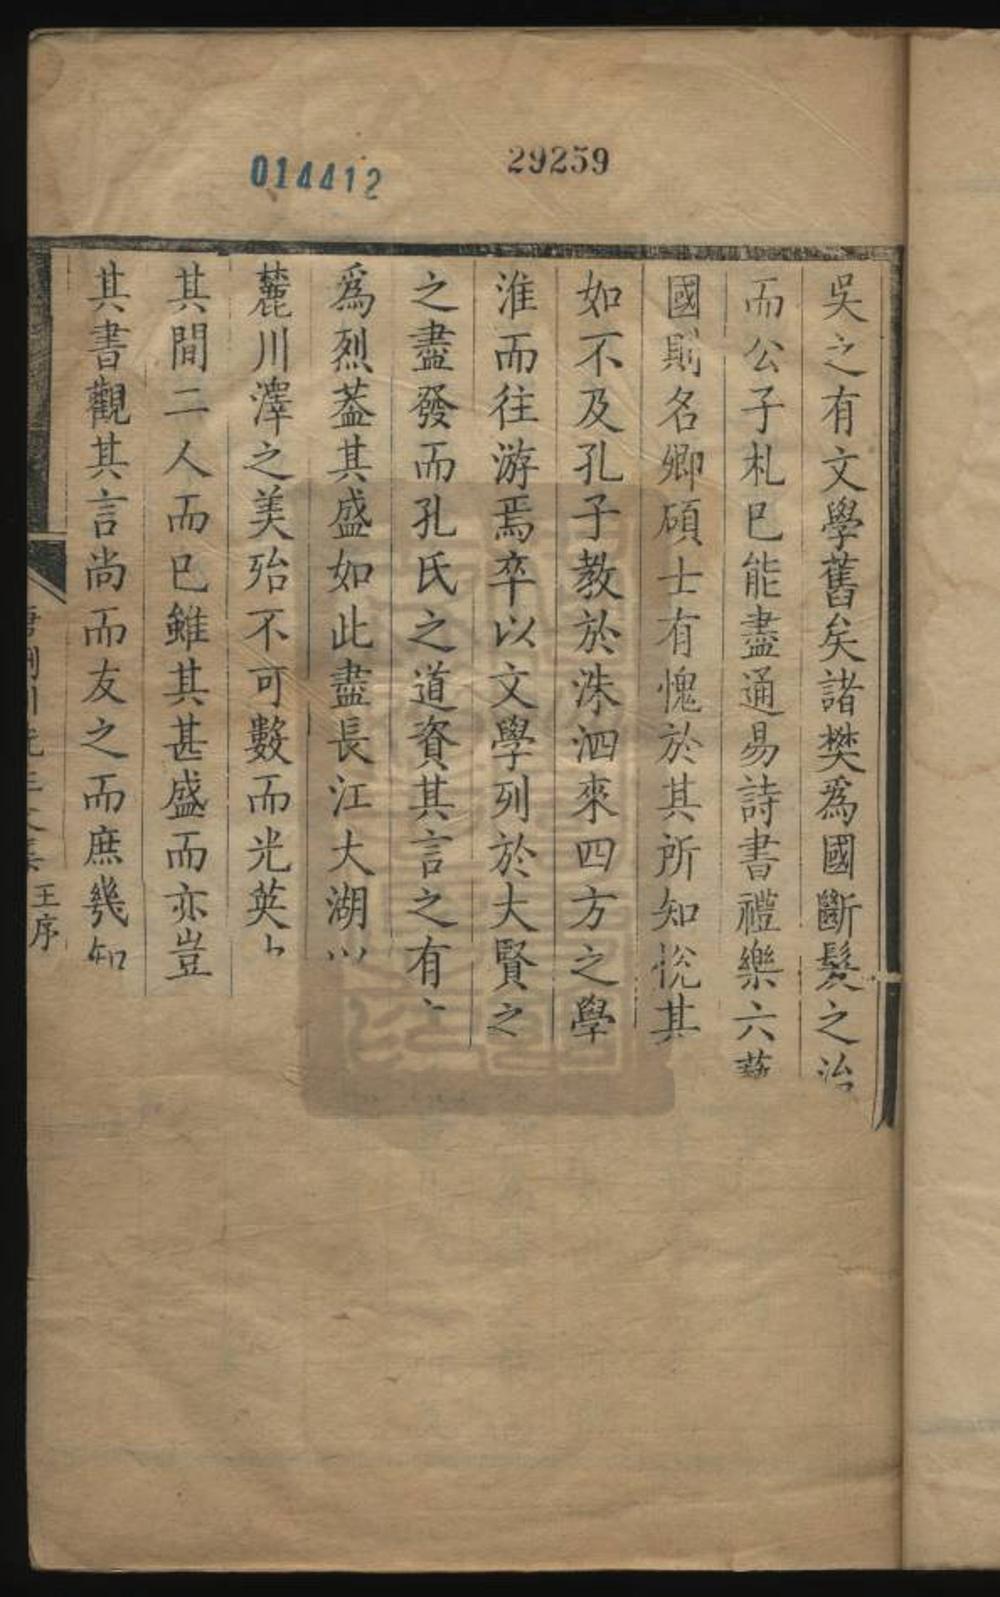 014412
29259
吳之有文學舊矣諸樊爲國斷髮之治
而公子札巳能盡通易詩書禮樂六藝
國則名卿碩士有愧於其所知悅其
如不及孔子教於洙泗來四方之學
淮而往游焉卒以文學列於大賢之
之盡發而孔氏之道資其言之有
爲烈葢其盛如此盡長江大湖
麓川澤之美殆不可數而光英
其間二人而巳雖其甚盛而亦豈
其書觀其言尚而友之而庶幾知
王序